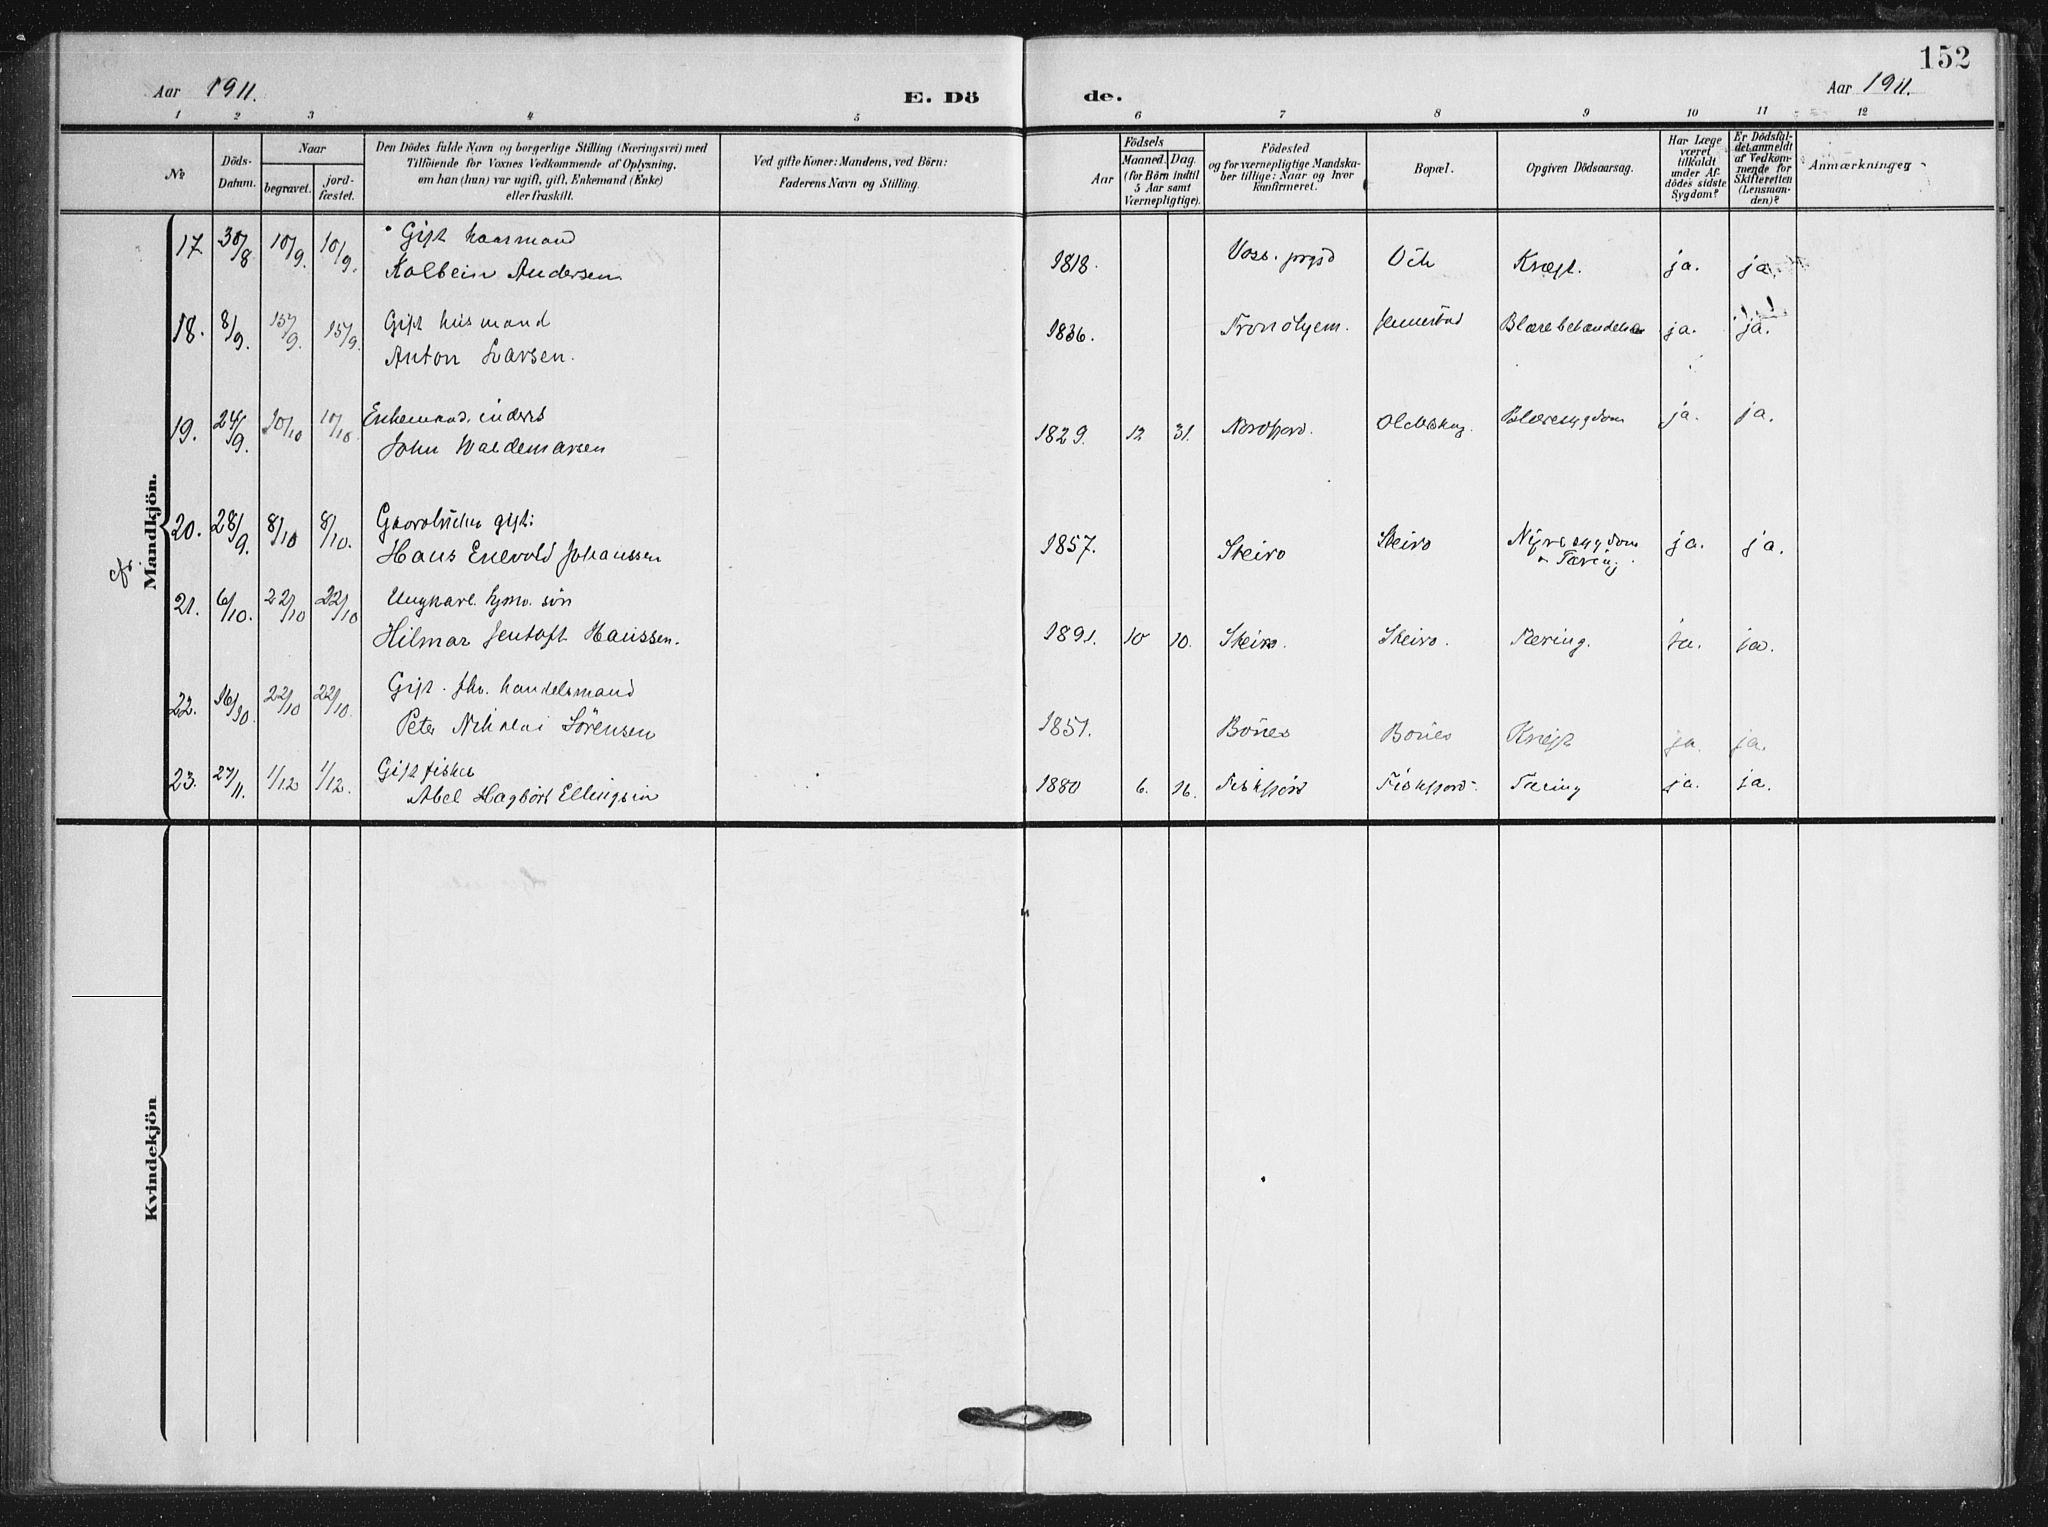 152
Aar 1911. E. Dö de. Aar 1911.
1 2 3 4 5 6 7 8 9 10 11 12
No
Döds-
Datum.
Naar
begravet.
jord-
fæstet.
Den Dödes fulde Navn og borgerlige Stilling (Næringsvei) med
Tilföiende for Voxnes Vedkommende af Oplysning,
om han (hun) var ugift, gift, Enkemand (Enke)
eller fraskilt.
Ved gifte Koner: Mandens, ved Börn:
Faderens Navn og Stilling.
Födsels
Aar
Maaned. Dag.
(for Börn indtil
5 Aar samt
Værnepligtige).
Födested
og for værnepligtige Mandska-
ber tillige: Naar og hvor
konfirmeret.
Bopæl.
Opgiven Dödsaarsag.
Har Læge
været
tilkaldt
under Af-
dödes sidste
Sygdom?
Er Dödsfal-
det anmeldt
af Vedkom-
mende for
Skifteretten
(Lensman-
den)?
Anmærkninger
Mandkjön.
17. 30/8 10/9. 10/9. Gift kaarmand
Kolbein Andersen 1818. Voss. prgjd Kræft. ja. ja.
18. 8/9. 15/9. 15/9. Gift husmand
Anton Larsen. 1836. Trondhjem. Jennestad ja. ja.
19. 24/9. 10/10 10/10 Enkemand. inderst
John Waldemarsen 1829. 12 31. Nordfjord. Blæresygdom ja. ja.
20. 28/9. 8/10 8/10. Gaardbruker gift:
Hans Enevold Johanssen 1857. Skeiro Skeiro Nyresygdom
Tæring. ja. ja.
21. 6/10. 22/10 22/10 Ungkarl. søn
Hilmar Jentoft Hanssen. 1891. 10 10. Skeiro. Skeiro. Tæring. ja. ja.
22. 16/10. 22/10 22/10. Gift. fhv. handelsmand
Peter Nikolai Sörensen 1851. Bönes Bönes Kræft ja. ja.
23. 27/11. 1/12 1/12. Gift fisker
Abel Hagbört Ellingsen 1880 6. 16. Fiskfjord Fiskfjord Tæring ja. ja.
Kvindekjön